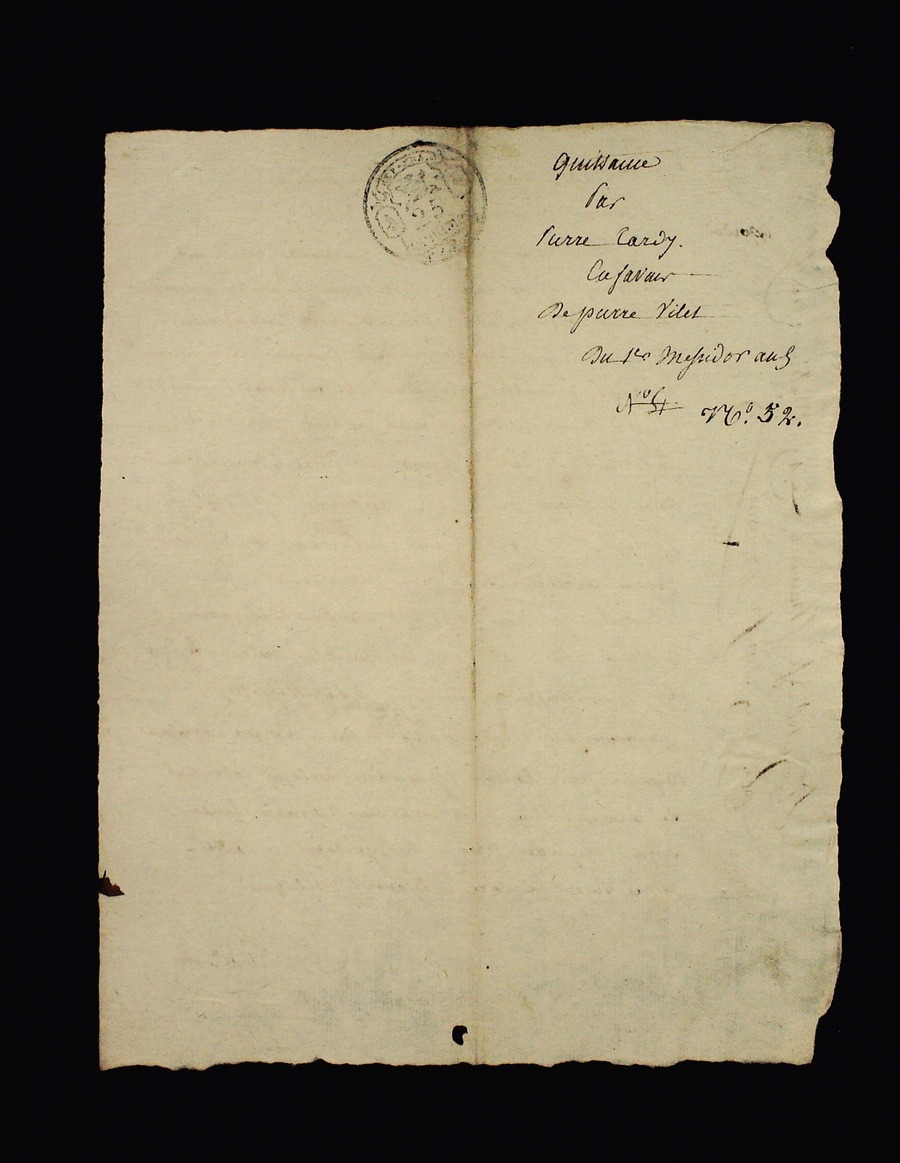 quittance
Par
Pierre Tardy.
En faveur
De pierre Vilet
Du 1er Messidor an 5
N.o 52.